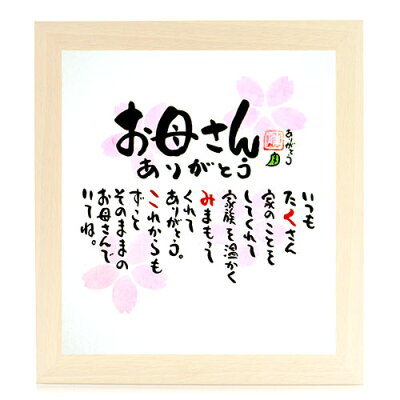 お母さん
ありがとう
ありがとう
いつも
たくさん
家のことを
してくれて
家族を温かく
みまもって
くれて
ありがとう。
これからも
ずっと
そのままの
お母さんで
いてね。